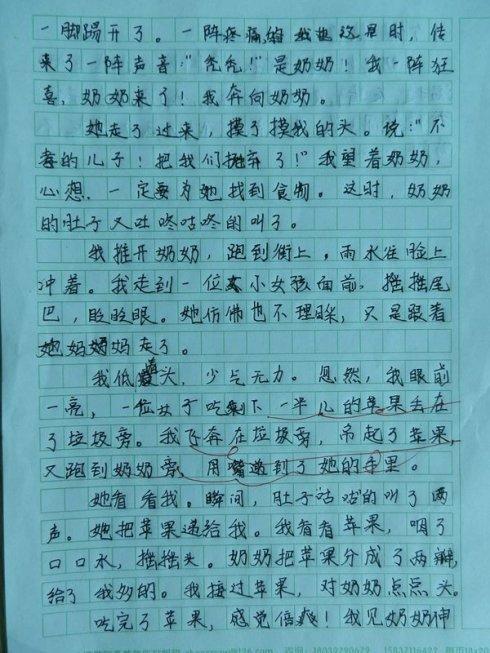 一脚踢开了。一阵疼痛的我这里时，传
来了一阵声音："秃秃！"是奶奶！我一阵狂
喜，奶奶来了！我奔向奶奶。
她走了过来，摸了摸我的头。说："不
孝的儿子！把我们抛弃了！"我望着奶奶，
心想，一定要为她找到食物。这时，奶奶
的肚子又吐咚咕咚的叫了。
我推开奶奶，跑到街上，雨水往脸上
冲着。我走到一位小女孩面前，摇摇尾
巴，眨眨眼。她仿佛也不理睬，只是跟着
她妈妈走了。
我低着头，少气无力。忽然，我眼前
一亮，一位女子吃剩下一半儿的苹果丢在
了垃圾旁。我飞奔在垃圾旁，吊起了苹果，
又跑到奶奶旁，用嘴递到了她的手里。
她看看我。瞬间，肚子"咕咕"的叫了两
声。她把苹果递给我。我看看苹果，咽了
口口水，摇摇头。奶奶把苹果分成了两瓣，
给了我多的。我接过苹果，对奶奶点点头。
吃完了苹果，感觉倍爽！我见奶奶神